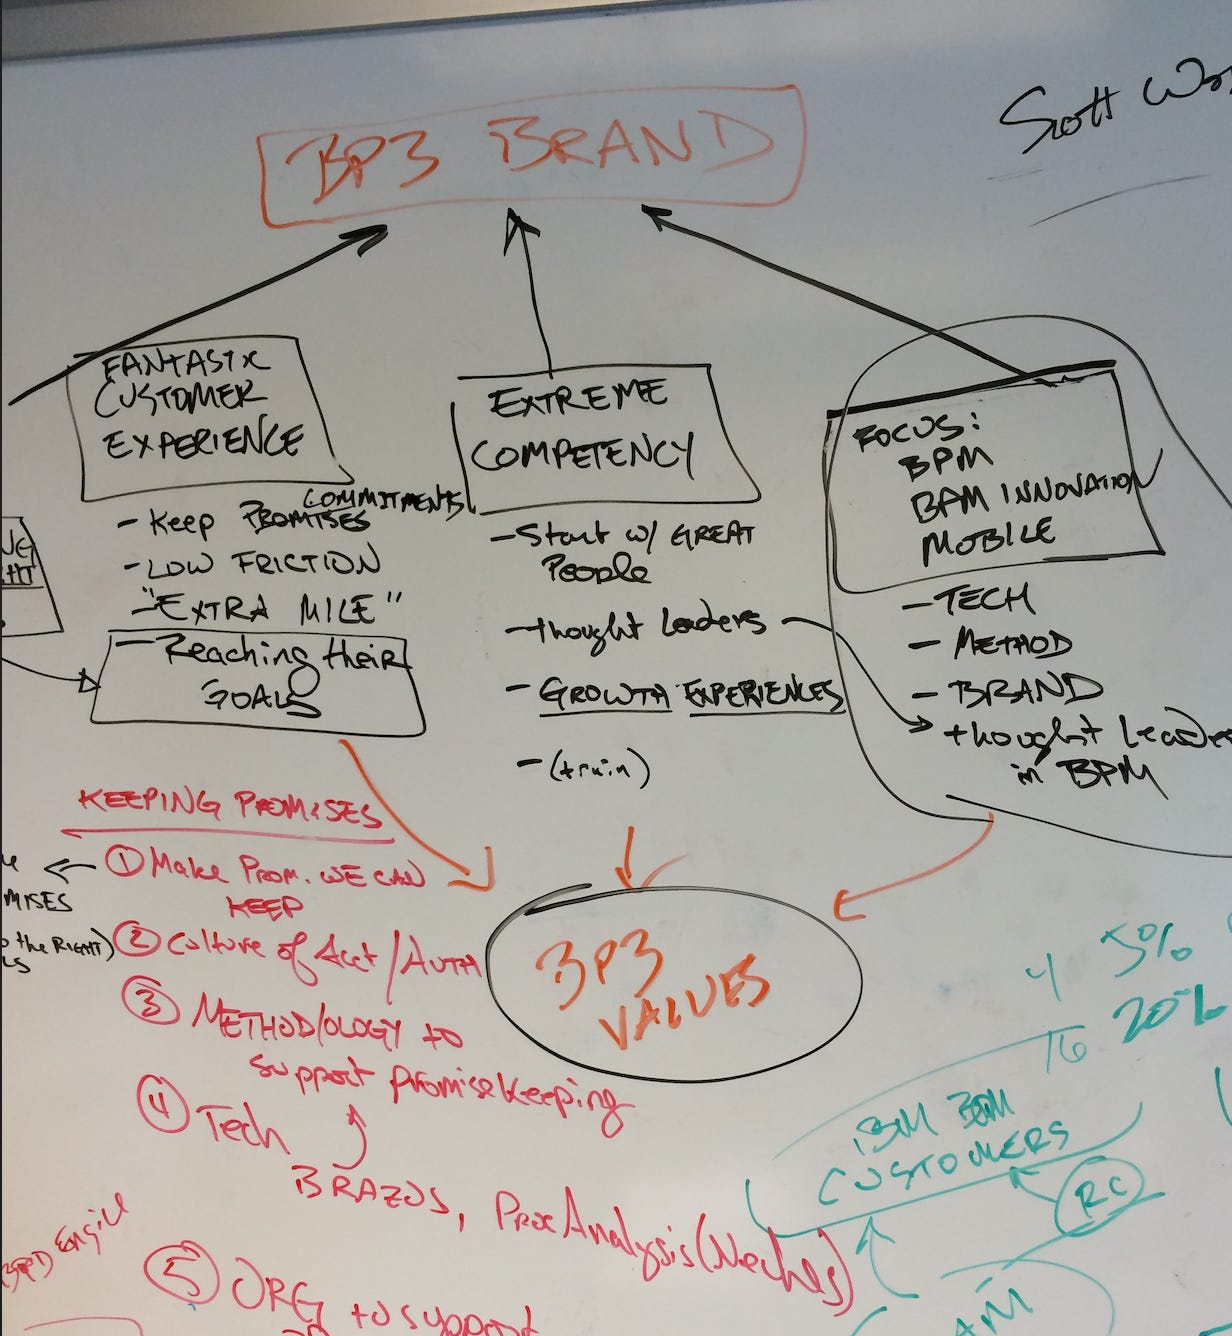 Scott
BP3 BRAND
FANTASTIC
CUSTOMER
EXPERIENCE
COMMITMENTS
- Keep PROMISES
- LOW FRICTION
- "EXTRA MILE"
- Reaching their
GOALS
EXTREME
COMPETENCY
- Start w/ GREAT
People
- thought Leaders
- GROWTH EXPERIENCES
- (train)
FOCUS:
BPM
BAM INNOVATION
MOBILE
- TECH
- METHOD
- BRAND
thought Leader
in BPM
KEEPING PROMISES
① Make PROM. WE CAN
KEEP
MISES
the RIGHT)
② Culture of Acct/AUTH
③ METHOD/OLOGY to
support promise keeping
④ Tech
BRAZOS, Proc Analysis (Neches)
⑤ ORG to support
BP3
VALUES
4 5%
16 20%
IBM BPM
CUSTOMERS
RC